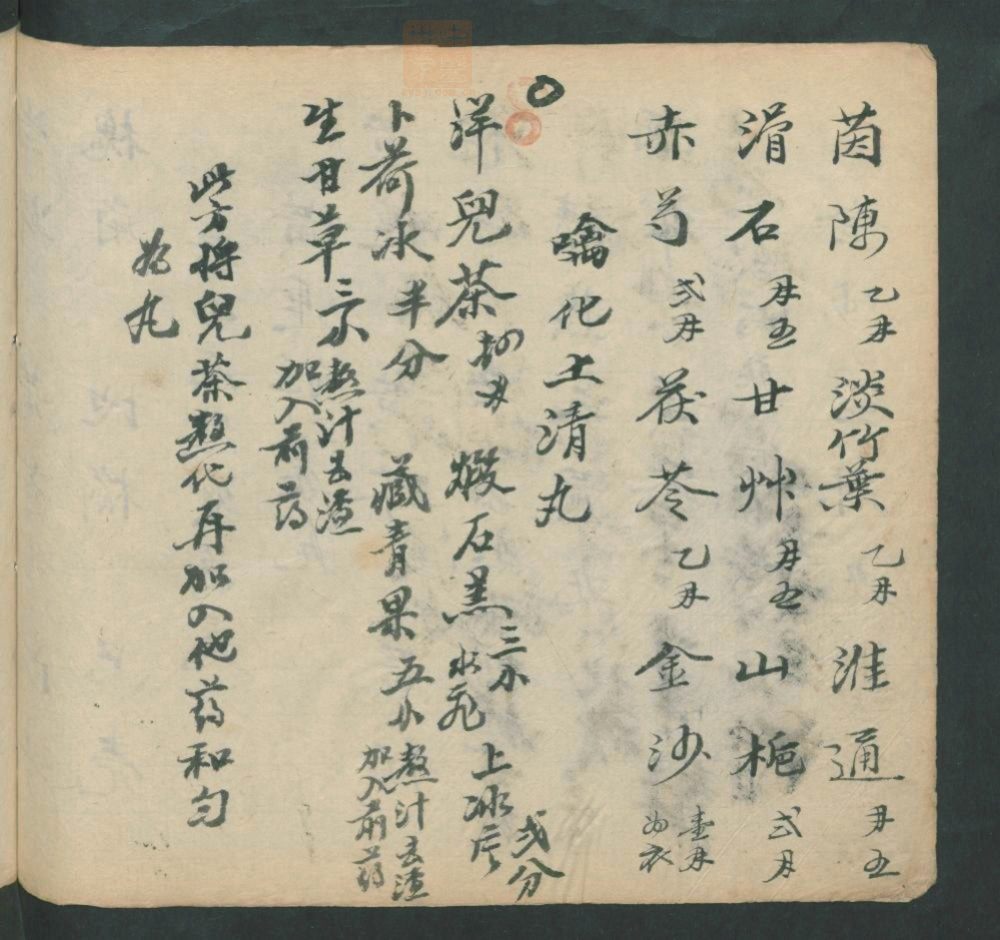 茵陳乙㕥淡竹葉乙㕥淮通㕥五
滑石㕥五甘艸㕥五山梔弍㕥
赤芍弍㕥茯苓乙㕥金沙壹㕥為衣
噙化上清丸
洋兒茶 煅石羔三小水飛 上冰片弍分
卜荷冰半分 藏青果五小熬汁去渣加入前药
生甘草三小熬汁去渣加入前药
此方将兒茶熬化再加入他药和匀
為丸